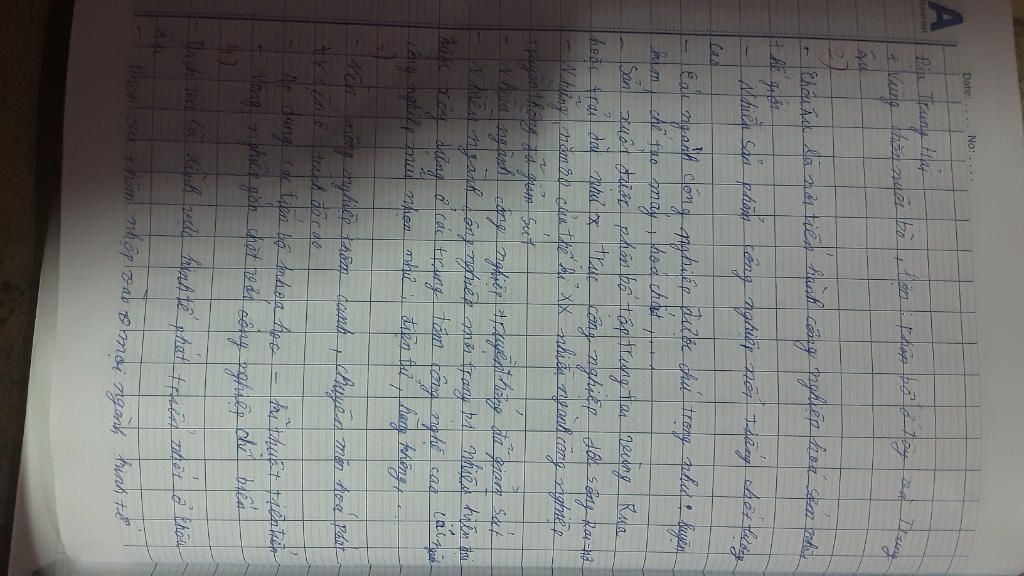 A
Date: ..... No: .....
Địa Trung Hải
+ Vùng biển miền bờ, lớn: phân bố ở Tây và Trung
Âu
2)
- Châu Âu là nơi tiến hành công nghiệp hoá sớm nhất
thế giới
- Nhiều sản phẩm công nghiệp nổi tiếng chất lượng
cao
- Các ngành công nghiệp được chú trọng như: luyện
kim, chế tạo máy, hoá chất, ...
- Sản xuất được phân bố tập trung tại vùng Rua
hoặc trải dài như x trục công nghiệp dọc sông Rai-nơ
- Những năm 80 của thế kỉ XX nhiều ngành công nghiệp
truyền thống đã giảm sút
- Nhiều ngành công nghiệp truyền thống đã giảm sút
- Nhiều ngành công nghiệp mới trang bị nhiều hiện đại
được xây dựng ở các trung tâm công nghệ cao các ngành
công nghiệp mũi nhọn như: điện tử, hàng không, ...
3)
- Nền nông nghiệp thâm canh, chuyên môn hoá phát
triển ở trình độ cao
- Áp dụng các tiến bộ khoa học - kĩ thuật tiên tiến
- Nông nghiệp gắn chặt với công nghiệp chế biến
4)
- Dịch vụ là lĩnh vực kinh tế phát triển nhất ở Châu
Âu
- Dịch vụ thâm nhập vào mọi ngành kinh tế